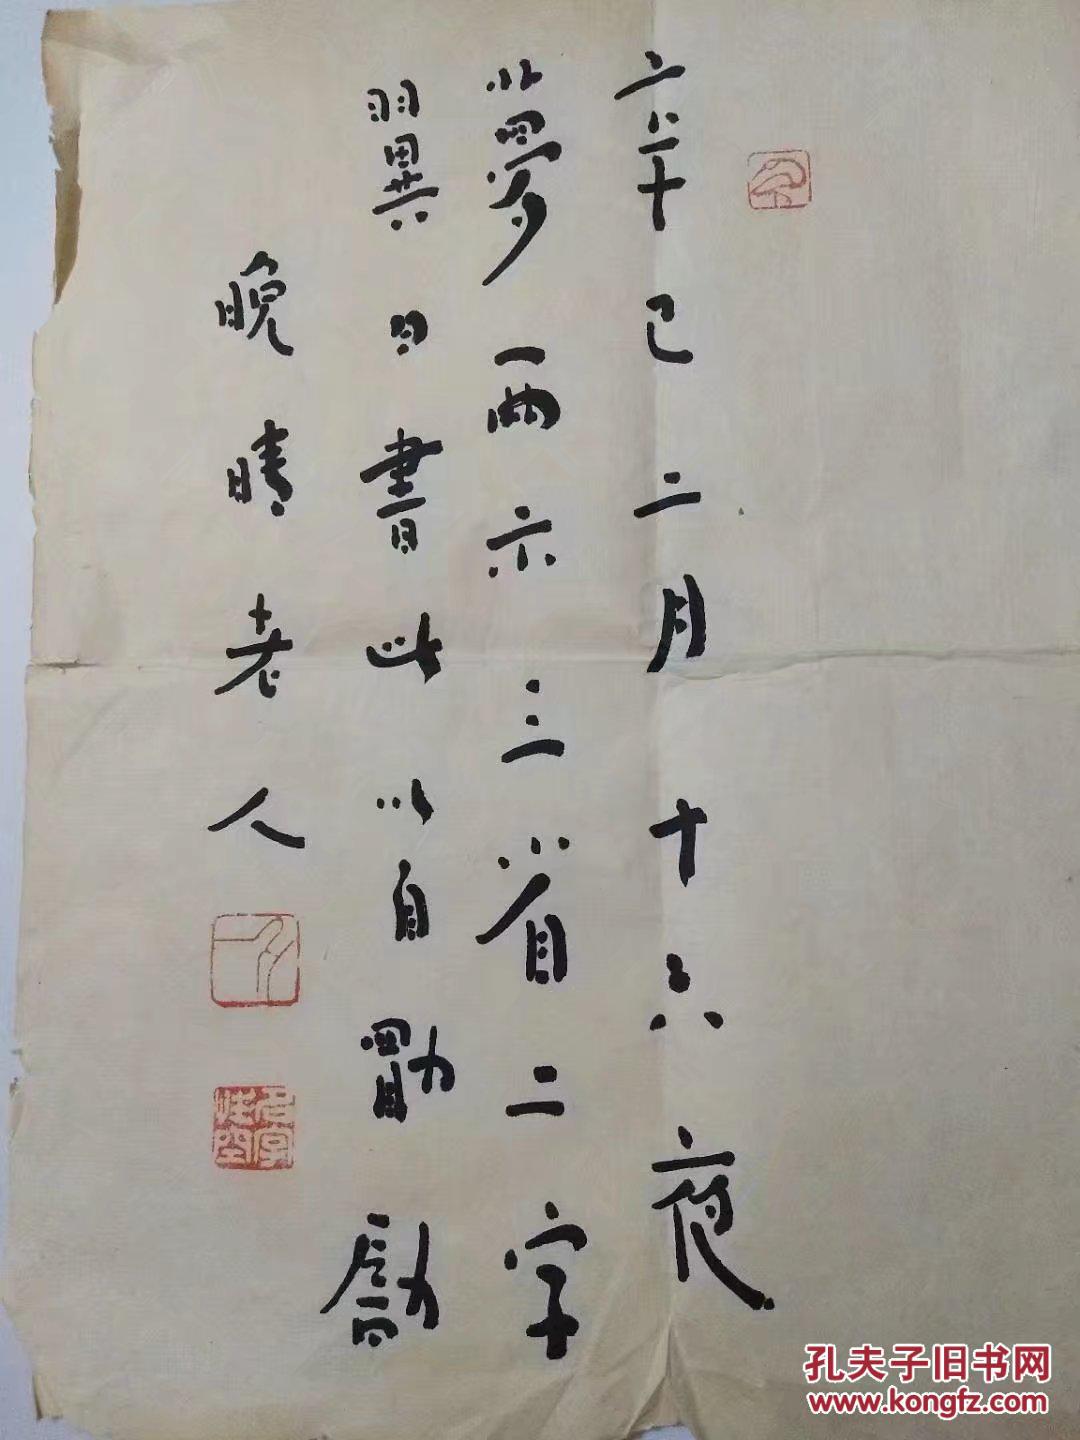 辛已二月十六夜
夢兩示三省二字
翼日書此以自勖勵
晚晴老人
孔夫子旧书网
www.kongfz.com